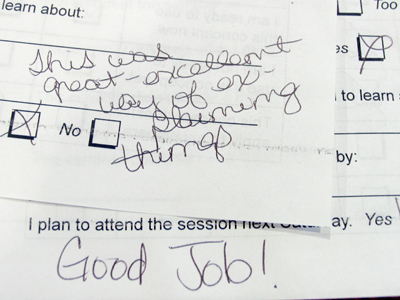 learn about:
Too
This was
great-excellent
way of ex-
plaining
things
es
to learn
No
by:
I plan to attend the session next
ay. Yes
Good Job!